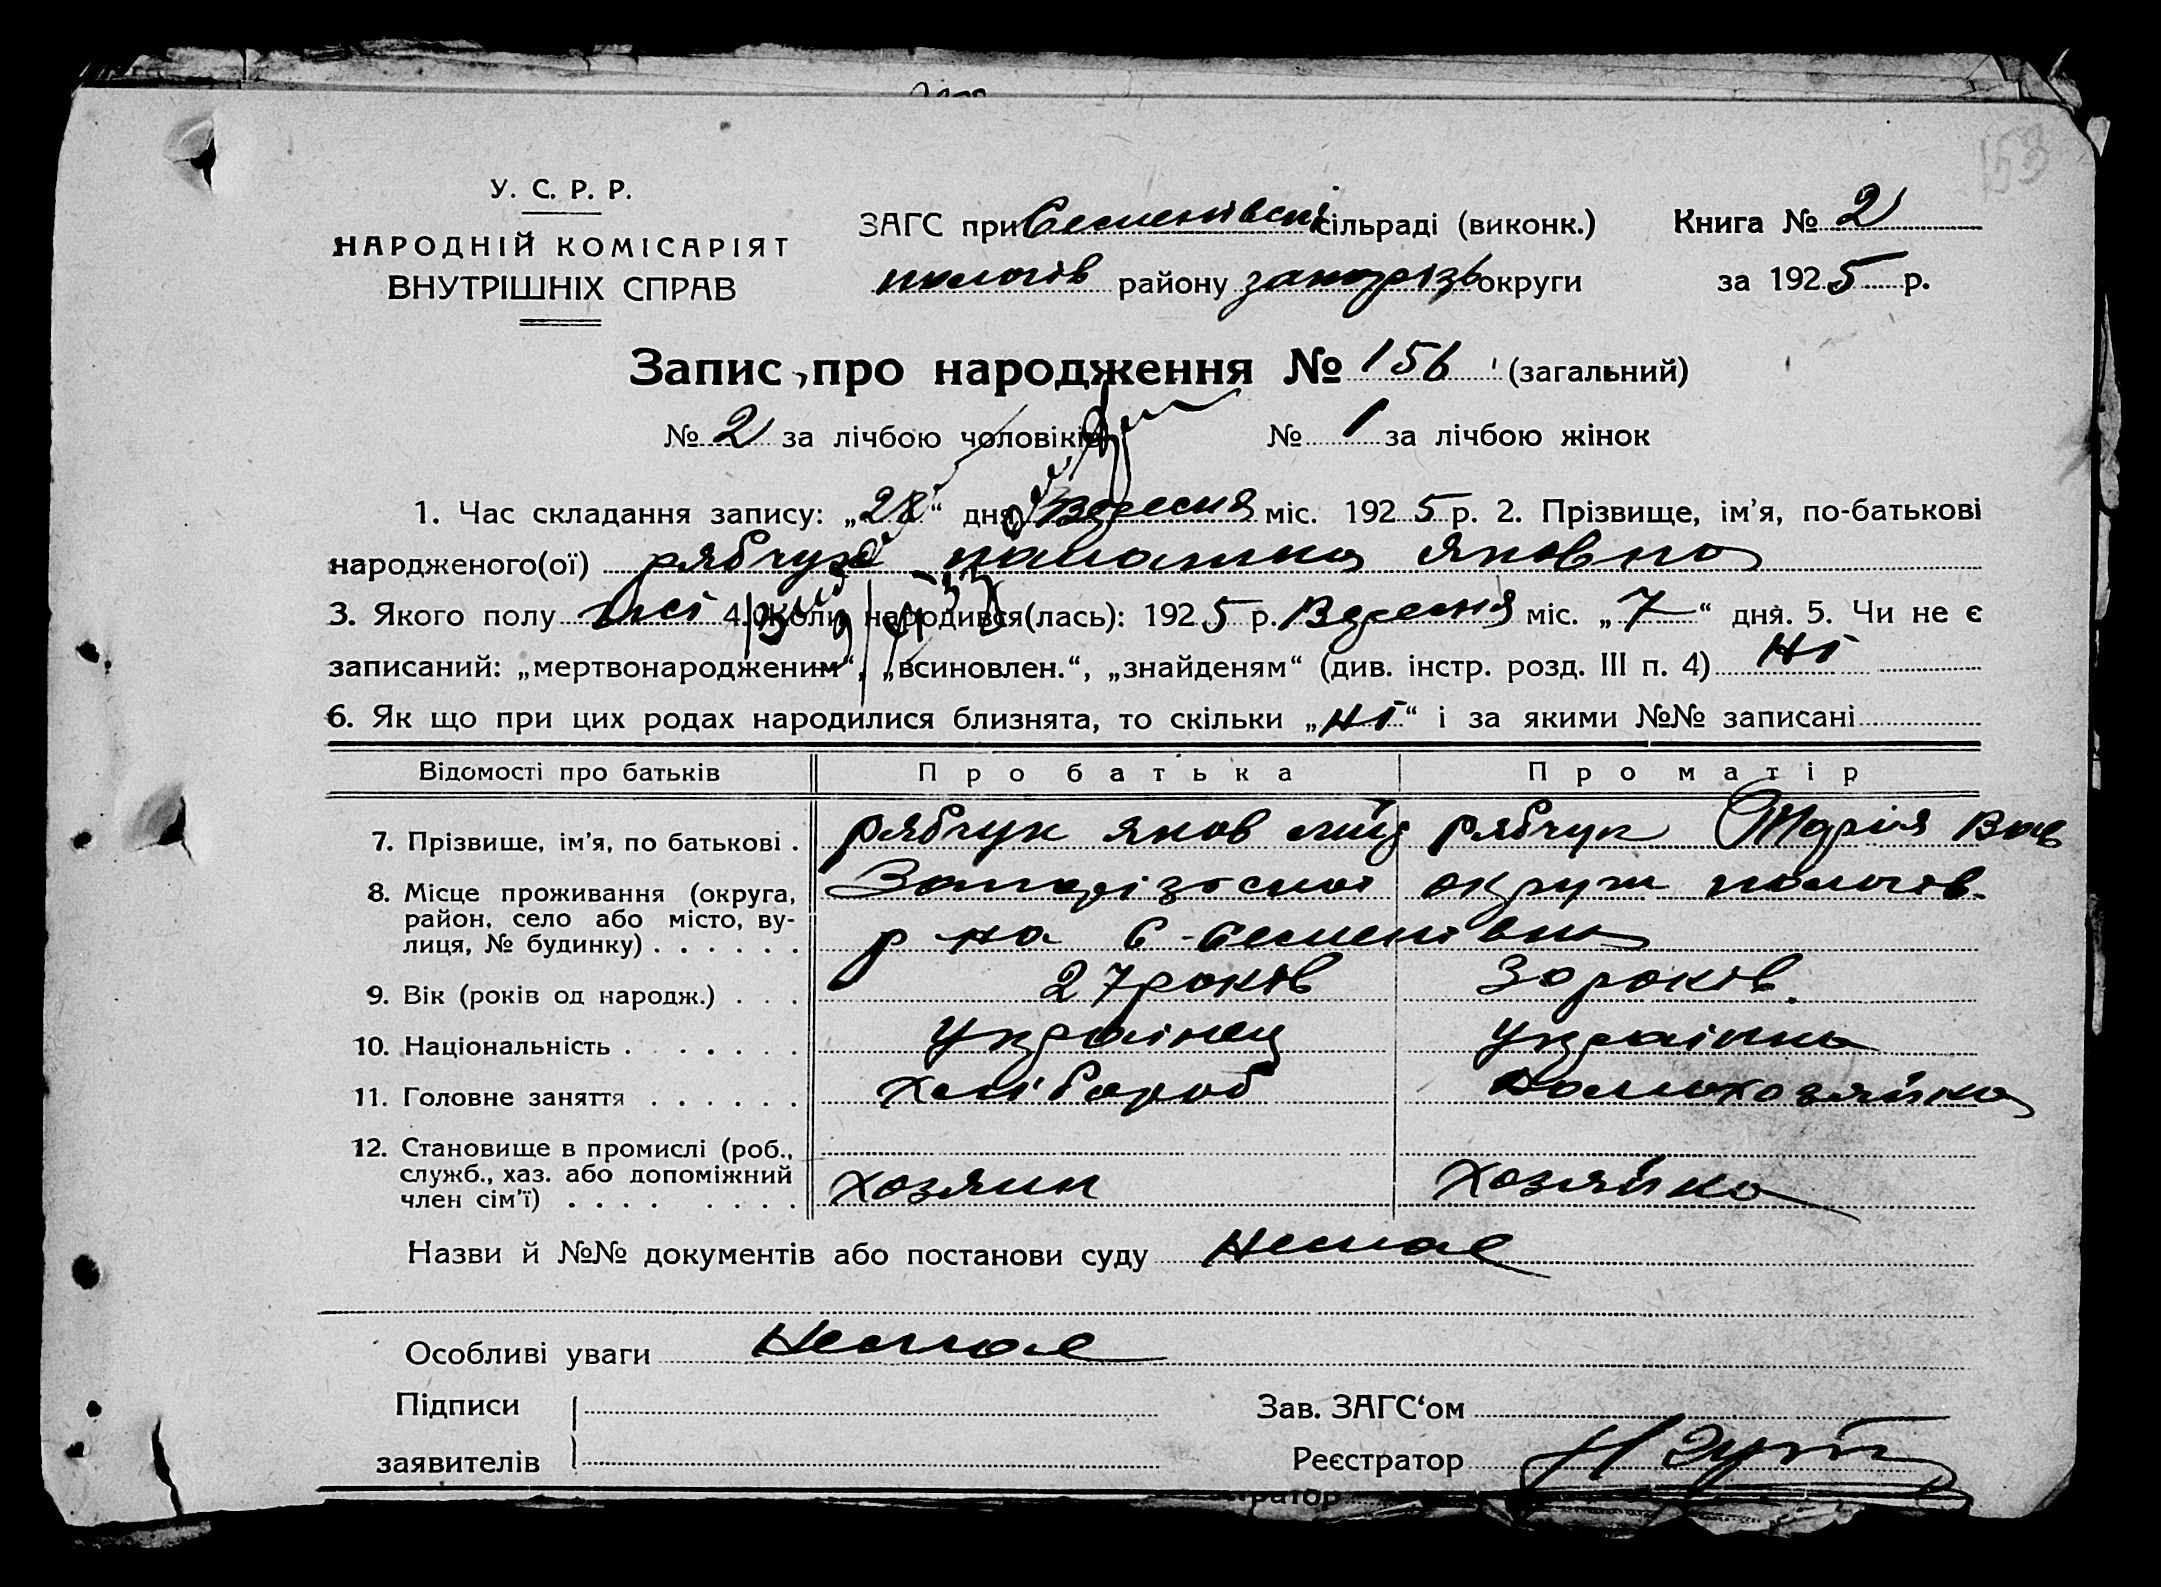 153
У. С. Р. Р.
НАРОДНІЙ КОМІСАРІЯТ
ВНУТРІШНІХ СПРАВ
ЗАГС при Семенівскі сільраді (виконк.) Книга № 2
пологів району запорізь округи за 1925 р.
Запис про народження № 156 (загальний)
№ 2 за лічбою чоловіків № 1 за лічбою жінок
1. Час складання запису: „28“ дня Вересня міс. 1925 р. 2. Прізвище, ім’я, по-батькові
народженого(ої) рябчук Яковна
3. Якого полу жісі 4. Коли народився(лась): 1925 р. Вересня міс. „7“ дня. 5. Чи не є
записаний: „мертвонародженим“, „всиновлен.“, „знайденям“ (див. інстр. розд. III п. 4) ні
6. Як що при цих родах народилися близнята, то скільки „ні“ і за якими №№ записані
Відомості про батьків Про батька Про матір
7. Прізвище, ім’я, по батькові . рябчук яков рябчук Марія
8. Місце проживання (округа, район, село або місто, вулиця, № будинку) . . . . . . Запорізської округи пологів.
р на с-Семенівка
9. Вік (років од народж.) . . . 27 років 30 років.
10. Національність . . . . . . Украінец Украінка
11. Головне заняття . . . . . . хлібороб домохозяйка
12. Становище в промислі (роб., служб., хаз. або допоміжний член сім’ї) . . . . . . . . хозяин хозяйка
Назви й №№ документів або постанови суду Немає
Особливі уваги Немає
Підписи Зав. ЗАГС‘ом
заявителів Реєстратор
ратор